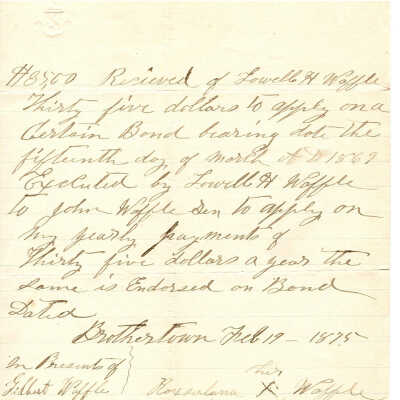 #35.00 Recieved of Lowell H Waffle
Thirty five dollars to apply on a
Certain Bond bearing date the
fifteenth day of march A D 1869
Executed by Lowell H Waffle
to John Waffle Sen to apply on
my yearly payments of
Thirty five Dollars a year the
same is Endorsed on Bond
Dated
Brothertown Feb 19 - 1875
In Presents of
her
Gilbert Waffle Roxsulana X Waffle